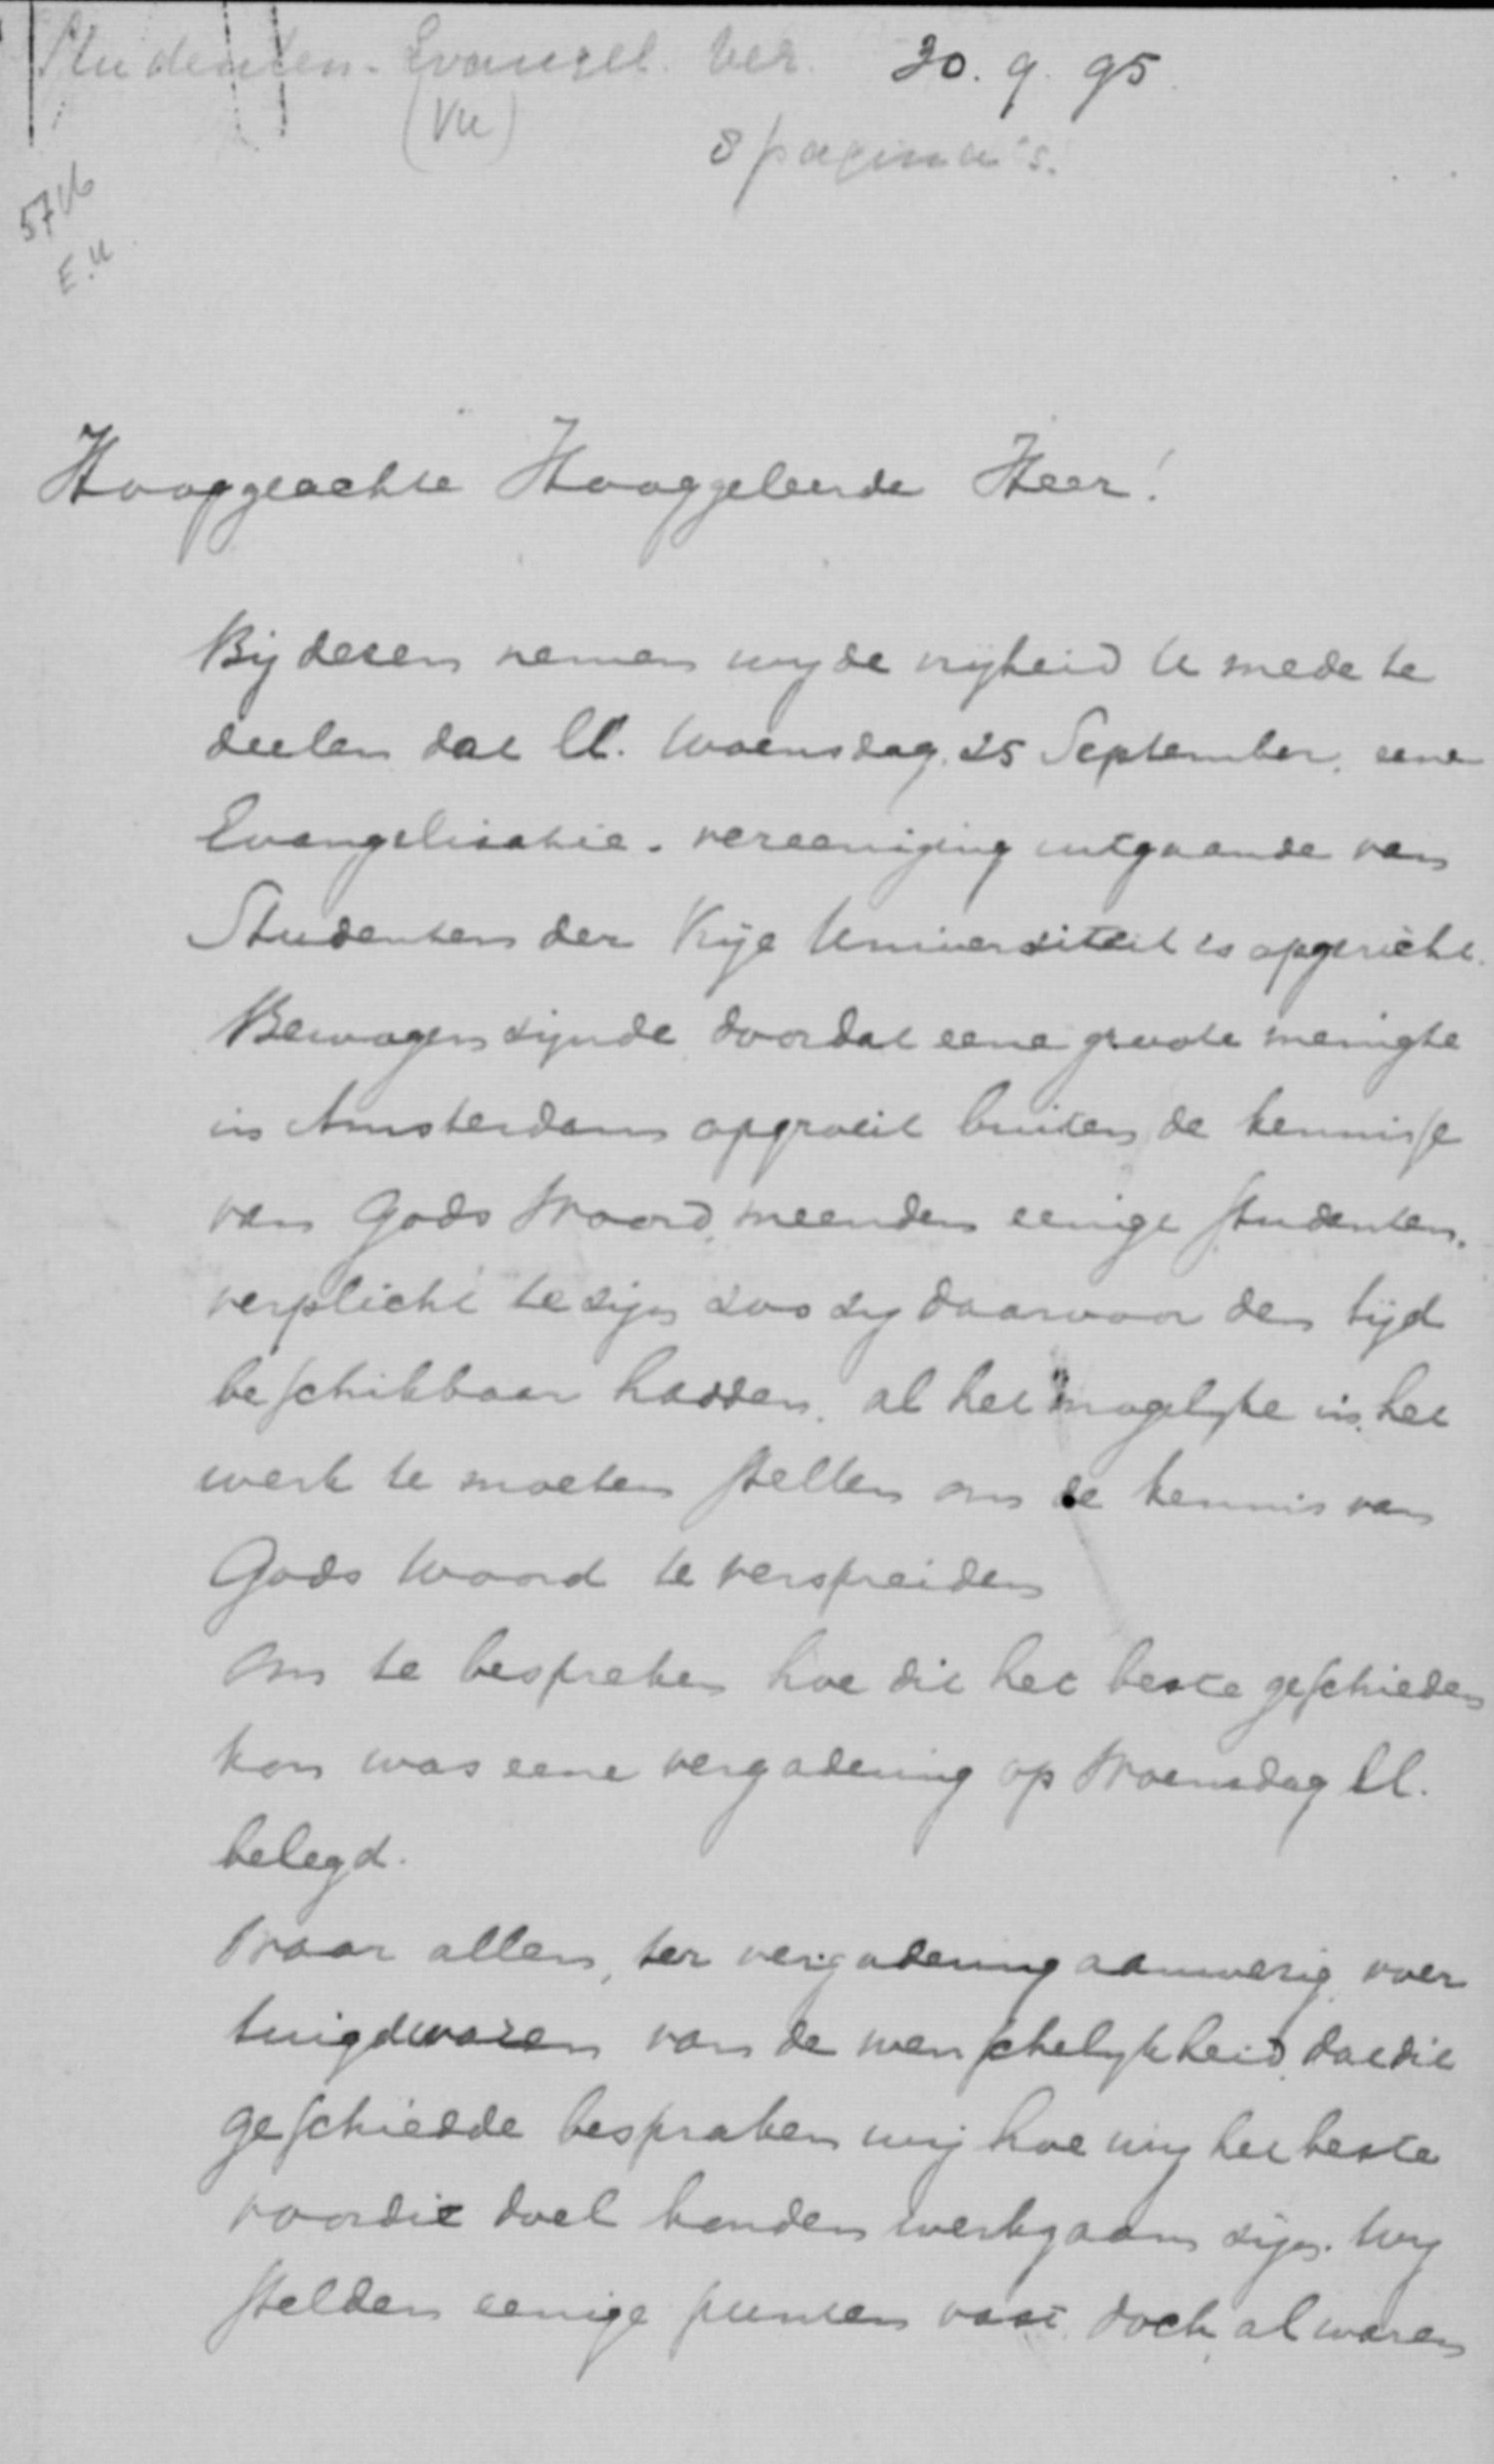 Studenten-Evangel. Ver. 30.9.95.
(VU)
8 pagina's.
5716
E.U.
Hooggeachte Hooggeleerde Heer!
Bij dezen nemen wij de vrijheid U mede te
deelen dat ll. Woensdag 25 September, eene
Evangelisatie-vereeniging uitgaande van
Studenten der Vrije Universiteit is opgericht.
Bewogen zijnde doordat eene groote menigte
in Amsterdam opgroeit buiten de kennisse
van Gods Woord, meenden eenige studenten,
verplicht te zijn zoo zij daarvoor den tijd
beschikbaar hadden, al het mogelijke in het
werk te moeten stellen om de kennis van
Gods Woord te verspreiden
Om te bespreken hoe dit het beste geschieden
kon was eene vergadering op Woensdag ll.
belegd.
Waar allen, ter vergadering aanwezig, over
tuigd waren van de wenschelijkheid, dat dit
geschiedde bespraken wij hoe wij het beste
voor dit doel konden werkzaam zijn. Wij
stelden eenige punten vast doch, al waren